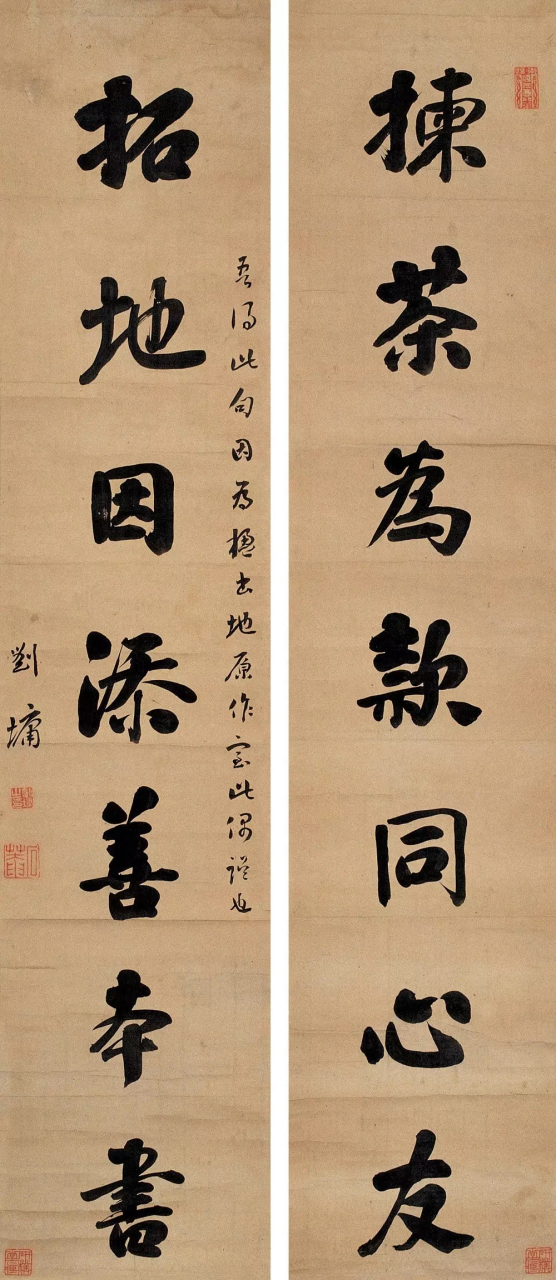 揀茶為款同心友
拓地因添善本書
吾得此句因為楹書地原作室此偶誤也
劉墉